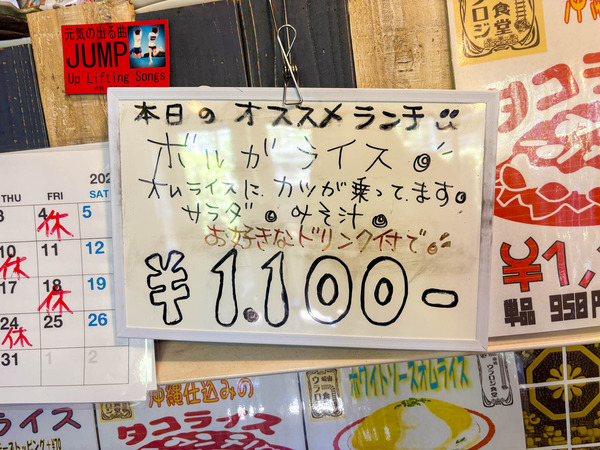 元気の出る曲
JUMP
Up Lifting Songs
本日の オススメランチ
ボルガライス
オムライスに、カツが乗ってます。
サラダ。みそ汁
お好きなドリンク付で
¥1.100-
THU FRI SAT
4 休 5
10 休 11 12
17 18 休 19
24 休 25 26
31 1
食堂
ウラロジ
タコライス
¥1,
単品 950
沖縄仕込みの
タコライス
ホワイトソースオムライス
ウラロジ食堂
ライス